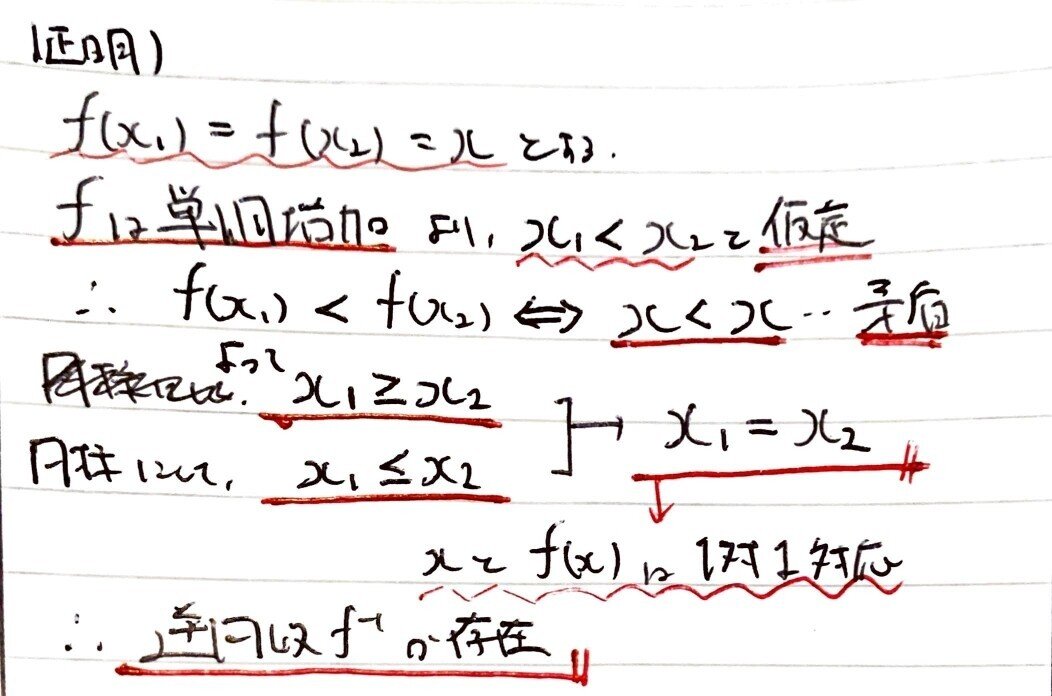 証明)
f(x₁) = f(x₂) = x とする.
fは単調増加より, x₁ < x₂ と仮定
∴ f(x₁) < f(x₂) ⇔ x < x … 矛盾
よって x₁ ≥ x₂
同様にして, x₁ ≤ x₂ → x₁ = x₂
x と f(x) は 1対1対応
∴ 逆関数 f⁻¹ が存在